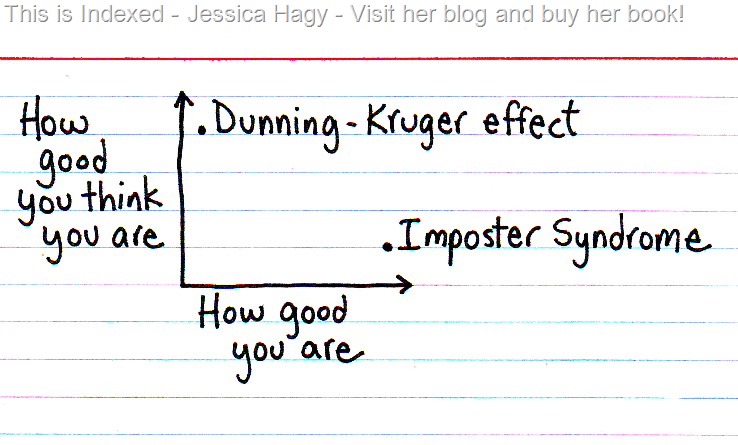 This is Indexed - Jessica Hagy - Visit her blog and buy her book!
How
good
you think
you are
.Dunning-Kruger effect
.Imposter Syndrome
How good
you are